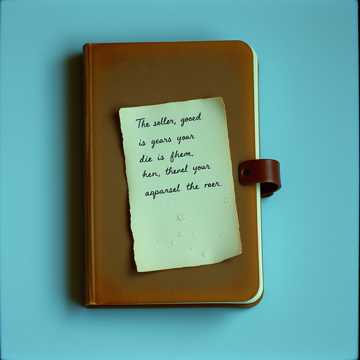 The soller, gooed
is gears your
die is fhem.
hen, thevel your
aqparsel the roer.